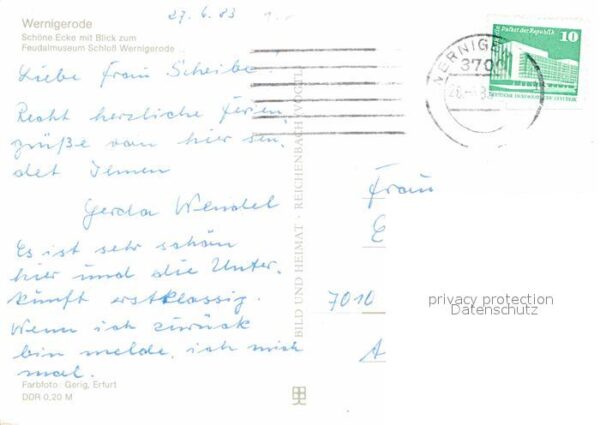 Wernigerode
Schöne Ecke mit Blick zum
Feudalmuseum Schloß Wernigerode
27.6.83
Liebe Frau Scheibe.
Recht herzliche Ferien-
grüße von hier sen-
det Ihnen
Gerda Wendel
Es ist sehr schön
hier und die Unter-
künft erstklassig.
Wenn ich zurück
bin melde, ich mich
mal.
Farbfoto: Gerig, Erfurt
DDR 0,20 M
BILD UND HEIMAT · REICHENBACH (VOGTL)
WERNIGE
3700
Palast der Republik
10
DEUTSCHE DEMOKRATISCHE REPUBLIK
Frau
E
7010
A
privacy protection
Datenschutz